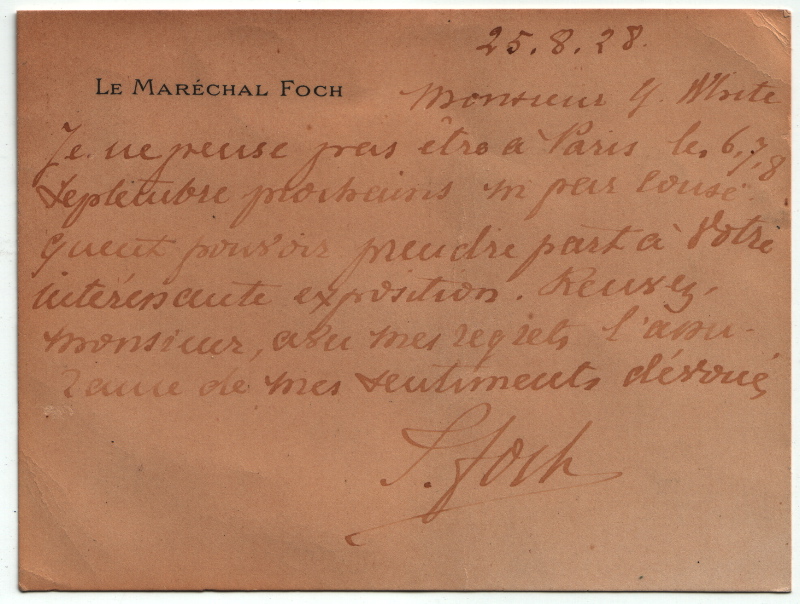 25.8.28.
LE MARÉCHAL FOCH
Monsieur G. White
Je ne pense pas être à Paris le 6,7,8
Septembre prochains ni par consé-
quent pouvoir prendre part à Votre
intéressante exposition. Recevez,
monsieur, avec mes regrets l'assu-
rance de mes sentiments dévoués
F. Foch